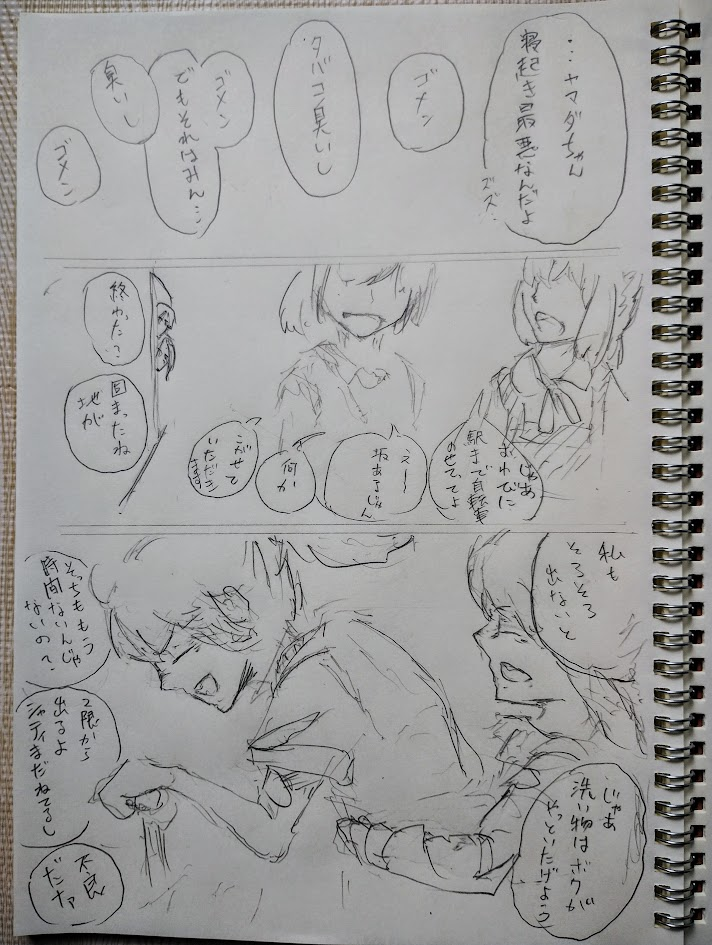 ・・ヤマダちゃん
寝起き最悪なんだよ
ズズ・
ゴメン
タバコ臭いし
ゴメン
でもそれはみん・・・
臭いし
ゴメン
じゃあ
おわびに
駅まで自転車
のせてってよ
えー
坂あるじゃん
何か
こがせて
いただき
ます
終わった?
固まったね
地が
私も
そろそろ
出ないと
じゃあ
洗い物はボクが
やっといたげよう
そっちももう
時間ないんじゃ
ないの?
2限から
出るよ
シャティまだねてるし
不良
だナァ